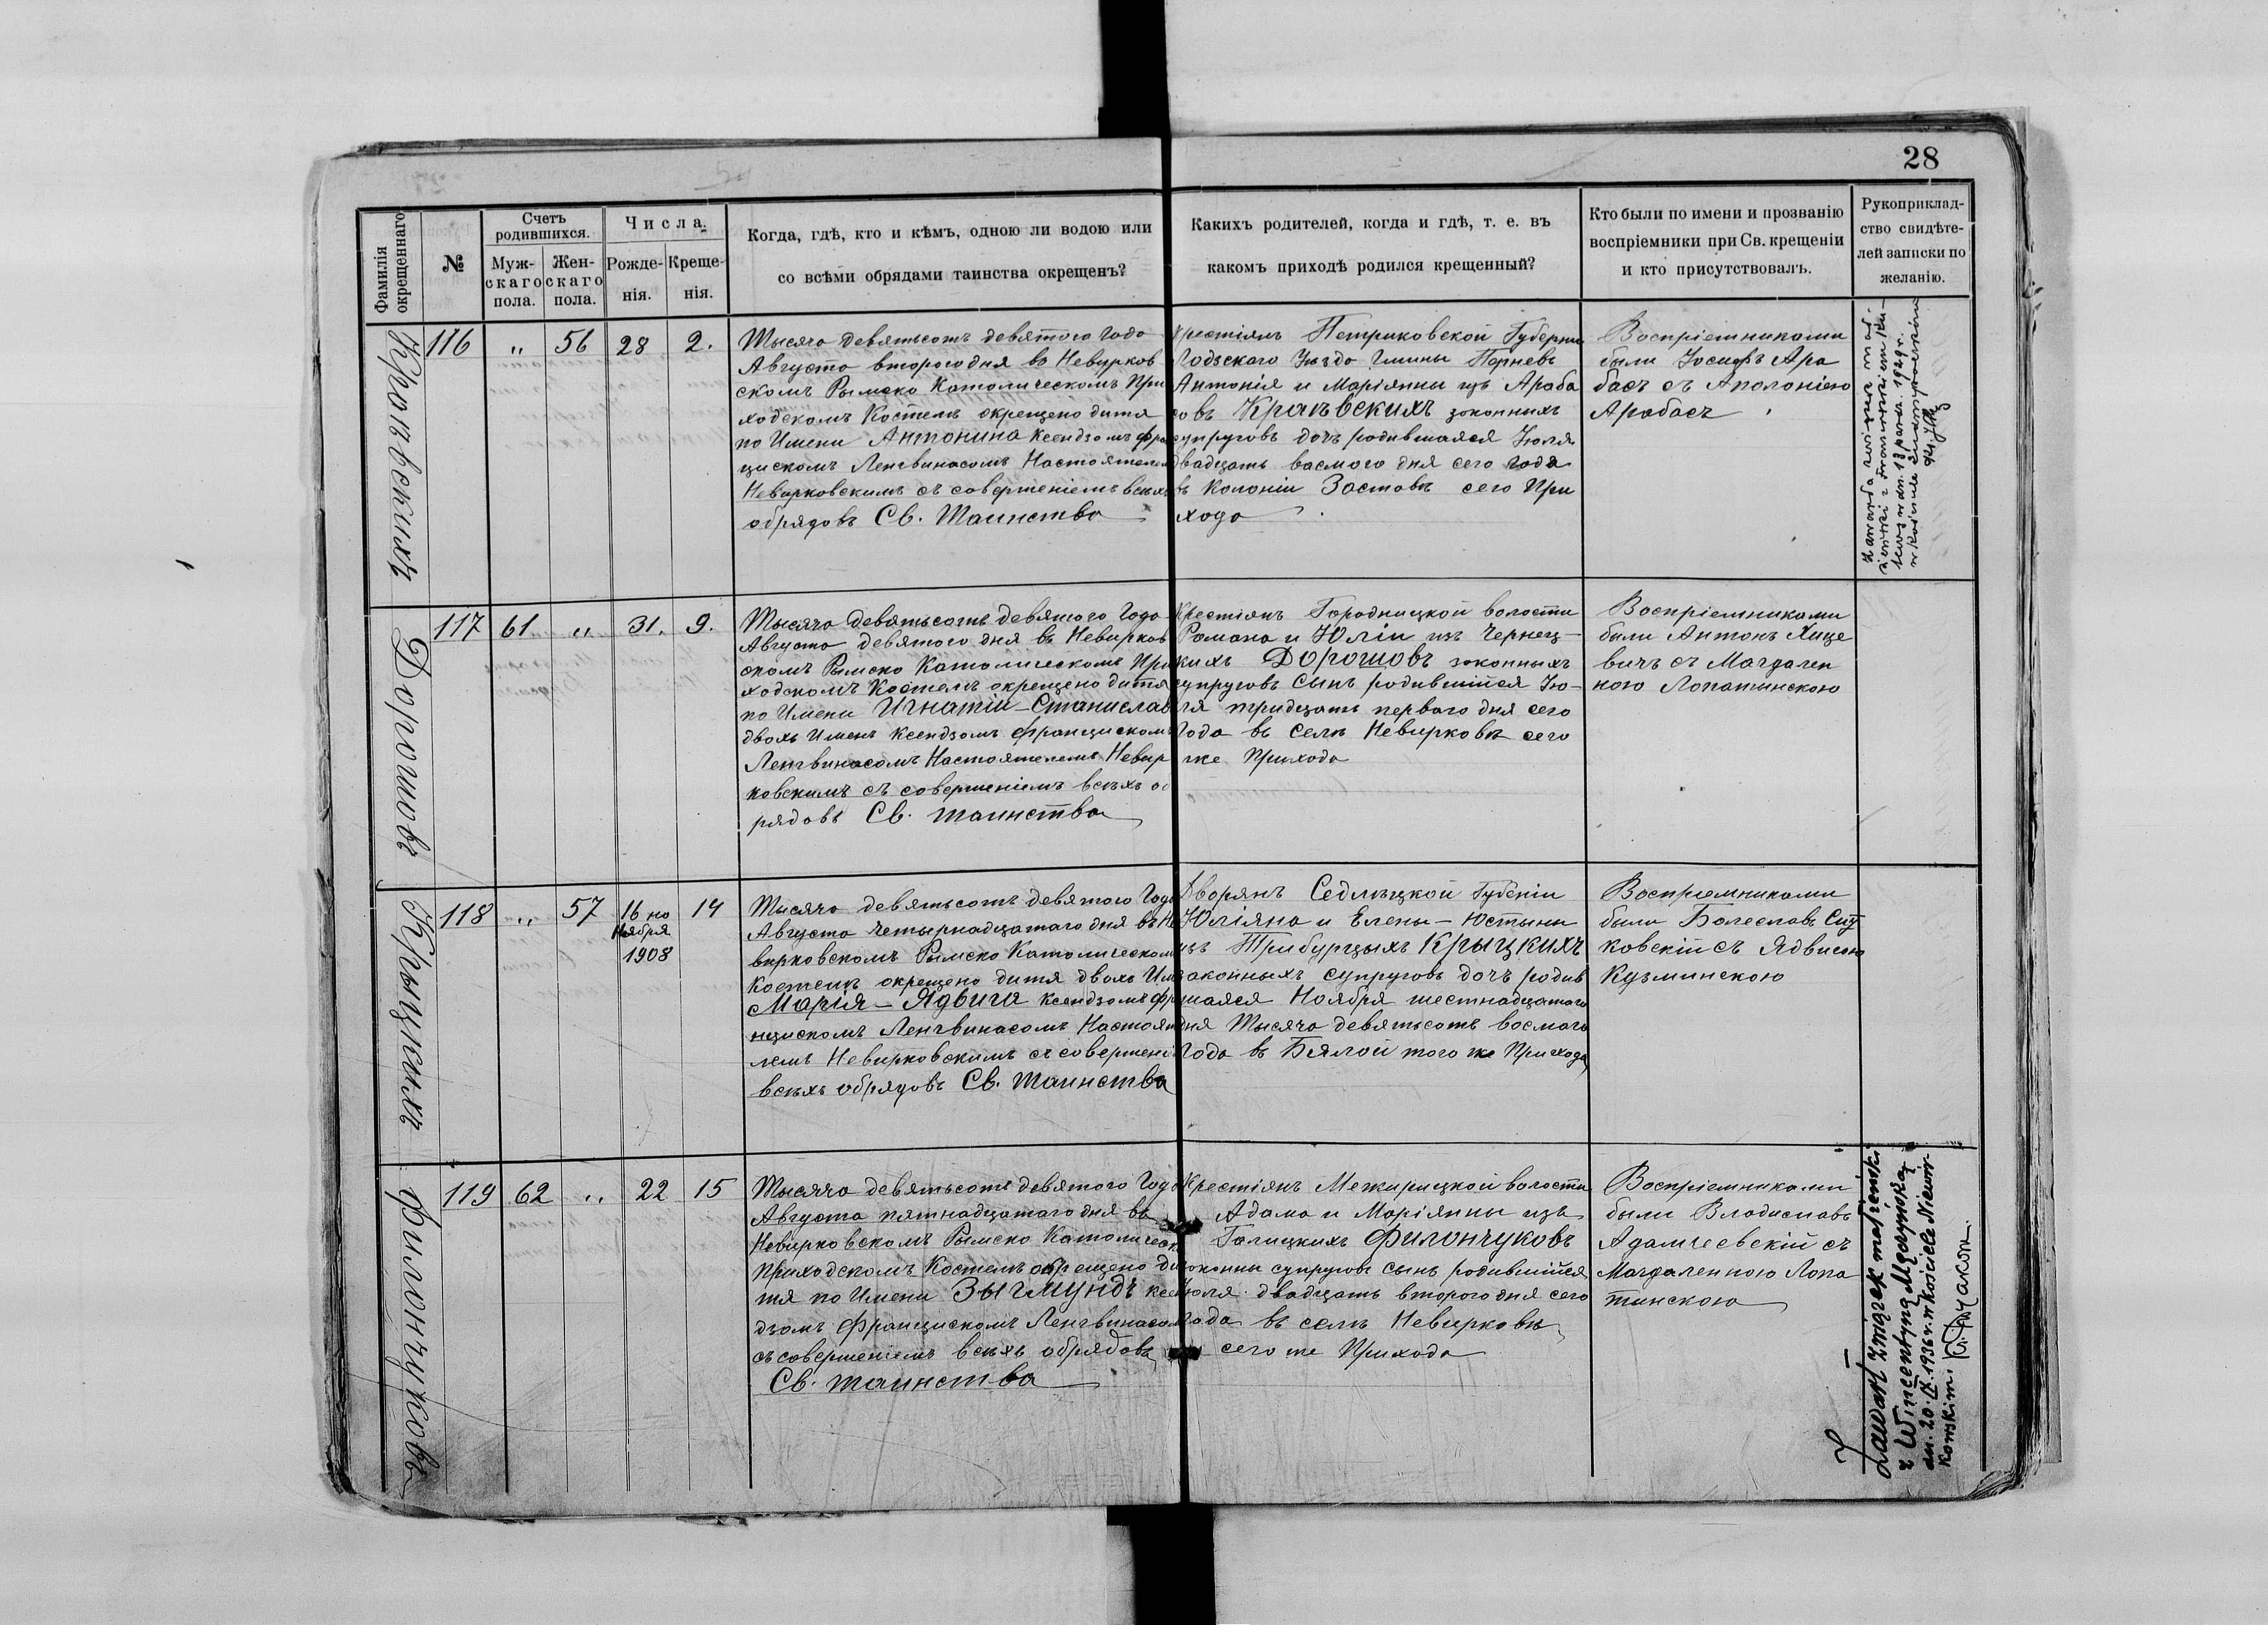 28
Фамилія
окрещеннаго
№
Счетъ
родившихся.
Муж-
скаго
пола.
Жен-
скаго
пола.
Числа.
Рожде-
нія.
Креще-
нія.
Когда, гдѣ, кто и кѣмъ, одною ли водою или
со всѣми обрядами таинства окрещенъ?
Какихъ родителей, когда и гдѣ, т. е. въ
какомъ приходѣ родился крещенный?
Кто были по имени и прозванію
воспріемники при Св. крещеніи
и кто присутствовалъ.
Рукоприклад-
ство свидѣте-
лей записки по
желанію.
116 " 56 28 2.
Тысяча девятьсотъ девятого Года
Августа второго дня въ Невирков
скомъ Рымско Католическомъ При
ходскомъ Костелѣ окрещено дитя
по Имени Антонина Ксендзомъ Фра
цискомъ Ленгвинасомъ Настоятелем
Невирковскимъ съ совершеніемъ всѣхъ
обрядовъ Св. Таинства
Крестіянъ Петриковской Губерни
Лодзскаго Уѣзда Гмины
Антонія и Маріянны изъ Араба
совъ законныхъ
супруговъ дочь родившаяся Іюля
двадцать васмого дня сего года
въ Колоніи Заставе сего При
хода
Воспріемниками
были Іосифъ Ара
басъ съ Аполоніею
Арабасъ
Zawarła związek mał-
żeński z Franciszkiem
dn. 13 1929 r.
w kościele
117 61 " 31. 9.
Дорошовъ
Тысяча девятьсотъ девятого Года
Августа девятого дня въ Невирков
скомъ Рымско Католическомъ При
ходскомъ Костелѣ окрещено дитя
по Имени Игнатій-Станислав
двохъ Имень Ксендзомъ Францискомъ
Ленгвинасомъ Настоятелемъ Невир
ковскимъ съ совершеніемъ всѣхъ об
рядовъ Св. таинства
Крестіянъ Городницкой волости
Романа и Юліи изъ Чернец-
кихъ Дорошовъ законныхъ
супруговъ сынъ родившійся Ію-
ля тридцать перваго дня сего
Года въ селѣ Невирковѣ сего
же Прихода
Воспріемниками
были Антонъ Хице
вичъ съ Магдален
ною Лопатынскою
118 " 57 16 но
ября
1908
14
Крыцкихъ
Тысяча девятьсотъ девятого Года
Августа четырнадцатаго дня въ Не
вирковскомъ Рымско Католическом
Костелѣ окрещено дитя двохъ Им
Марія-Ядвига Ксендзомъ Фр
нцискомъ Ленгвинасомъ Настоят
лемъ Невирковскимъ съ совершені
всѣхъ обрядовъ Св. таинства
Дворянъ Седлѣцкой Губеніи
Юліяна и Елены-Юстыни
изъ Трибурцыхъ Крыцкихъ
законныхъ супруговъ дочь родив
шаяся Ноября шестнадцатаго
дня Тысяча девятьсотъ восмаго
Года въ Бялой того же Прихода
Воспріемниками
были Болеславъ
ковскій съ Ядвигою
Кузминскою
119 62 " 22 15
Филончуковъ
Тысяча девятьсотъ девятого Года
Августа пятнадцатаго дня въ
Невирковскомъ Рымско Католическ
Приходскомъ Костелѣ окрещено ди
тя по Имени Зыгмундъ ксен
дзомъ Францискомъ Ленгвинасом
съ совершеніемъ всѣхъ обрядовъ
Св. таинства
Крестіянъ Межирицкой волости
Адама и Маріянны изъ
Галицкихъ Филончуковъ
законны супруговъ сынъ родившійся
Іюля двадцать второго дня сего
Года въ селѣ Невирковѣ
сего же Прихода
Воспріемниками
были Владиславъ
Адамчевскій съ
Магдаленною Лопа
тинскою
Zawarł związek małżeński
z Wincentyną
dn. 20.IX.1936 r. w kościele Niewir-
kowskim.